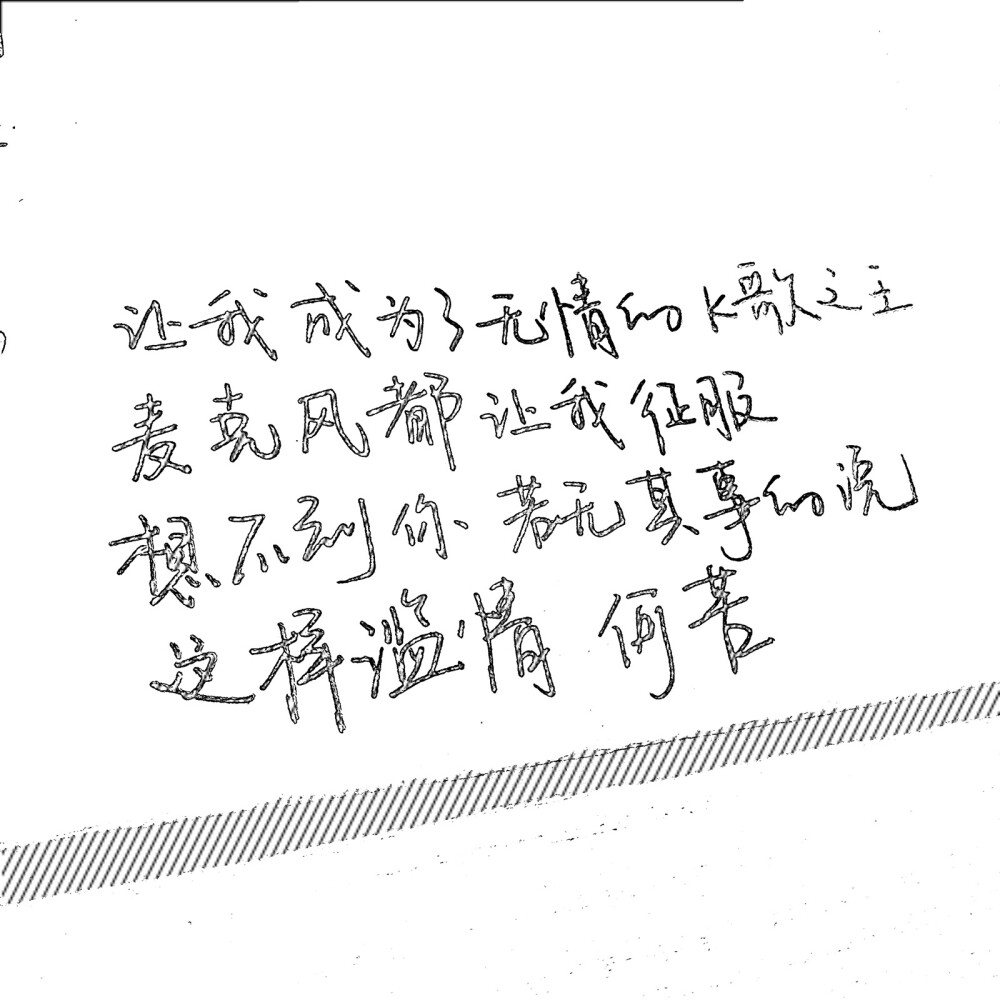 让我成为了无情的K歌之王
麦克风都让我征服
想不到你若无其事的说
这样滥情何苦